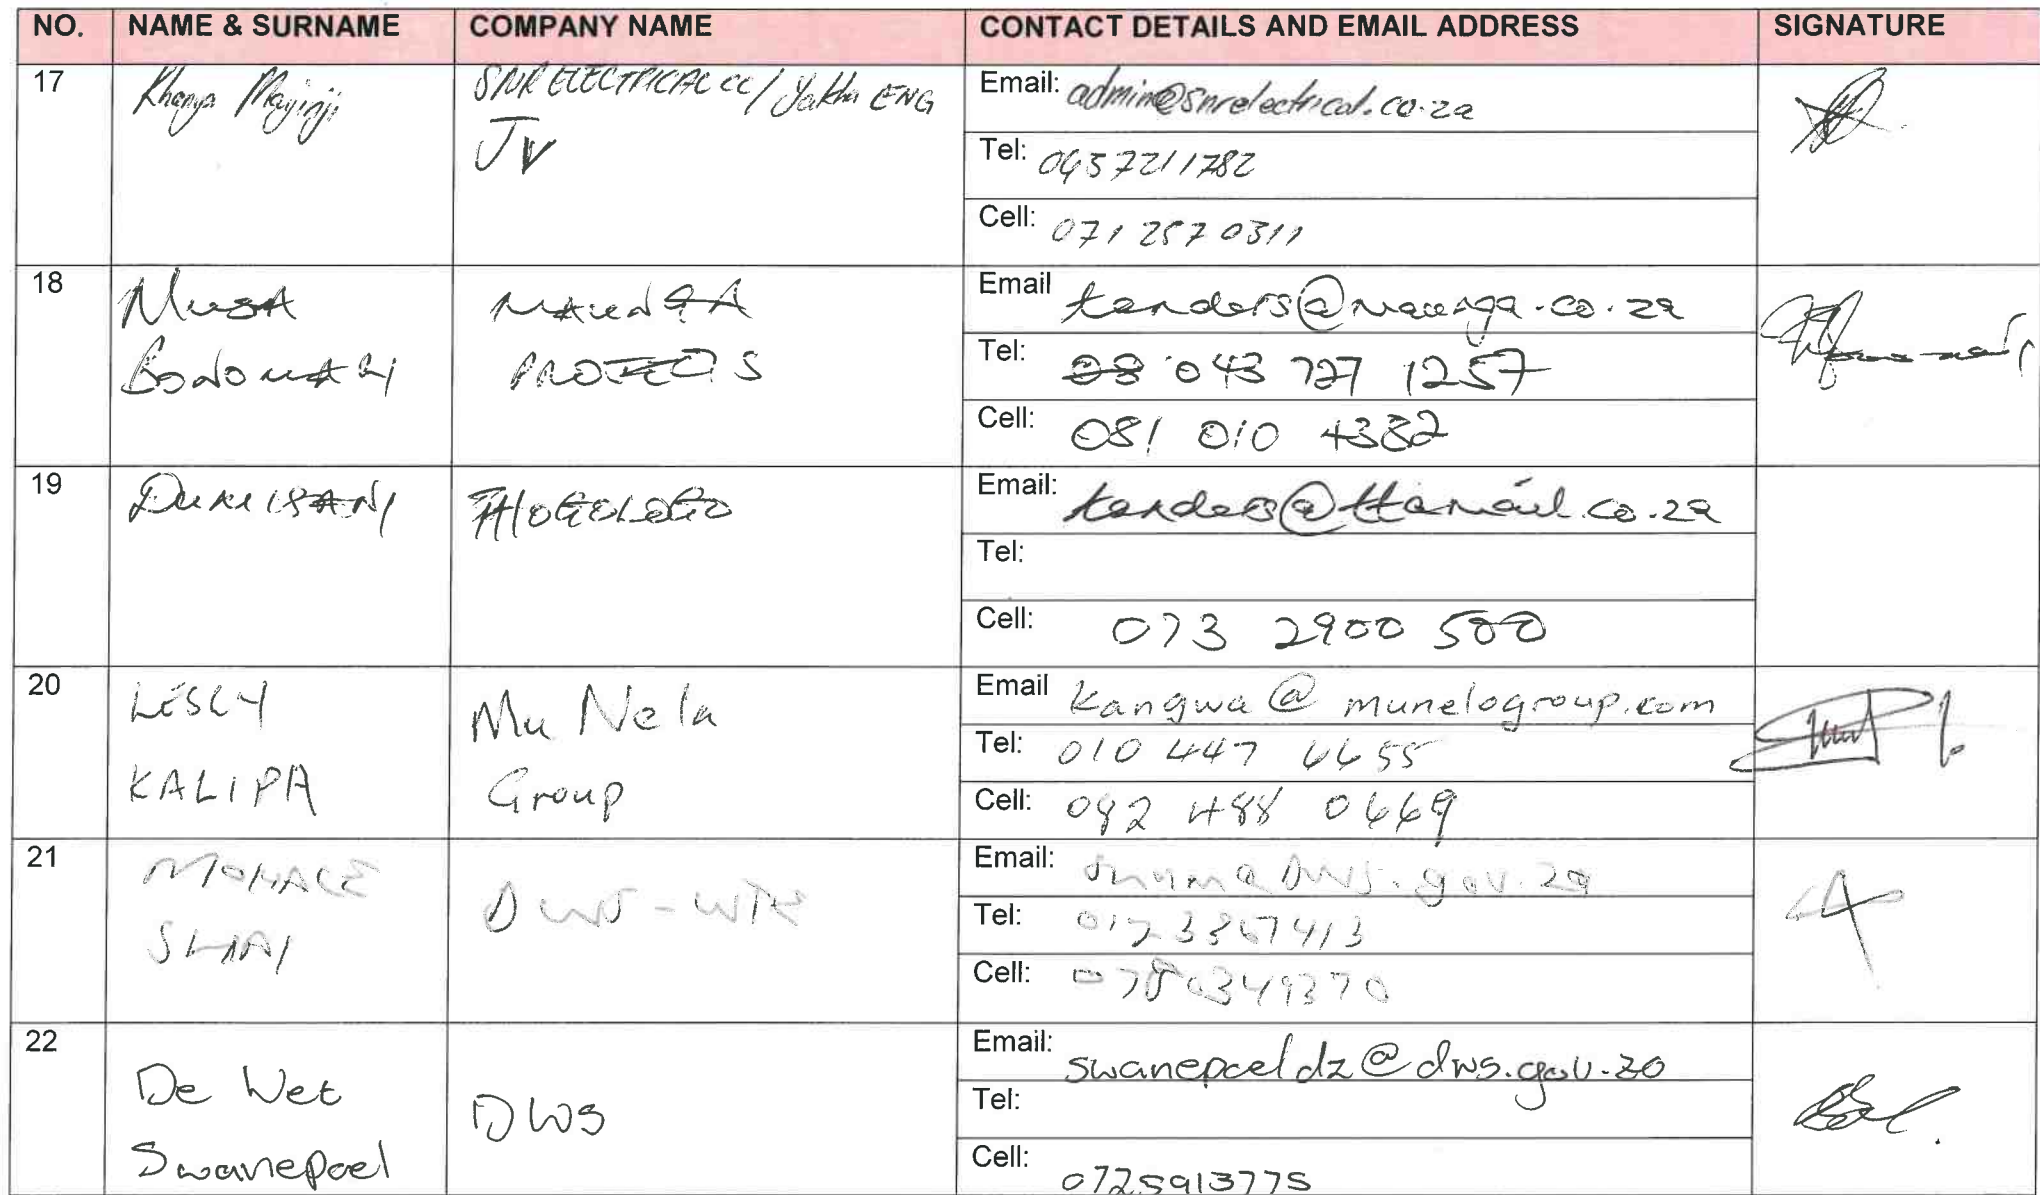 NO. NAME & SURNAME COMPANY NAME CONTACT DETAILS AND EMAIL ADDRESS SIGNATURE
17 Khanya SNR ELECTRICAL CC / Yakha ENG
JV
Email: admin@snrelectrical.co.za
Tel: 0437211782
Cell: 071 287 0311
18 MUSA
MAUNGA
PROJECTS
Email tenders@maunga.co.za
Tel: 043 727 1257
Cell: 081 010 4382
19 DUMISANI
Email: tenders@
Tel:
Cell: 073 2900 500
20 LESLY
KALIPA
Mu Nela
Group
Email kangwa@munelogroup.com
Tel: 010 447 6655
Cell: 082 488 0669
21
DWS -
Email: DWS.gov.za
Tel: 012 3367413
Cell:
22 De Wet
Swanepoel
DWS
Email: swanepoeldz@dws.gov.za
Tel:
Cell: 0725913775